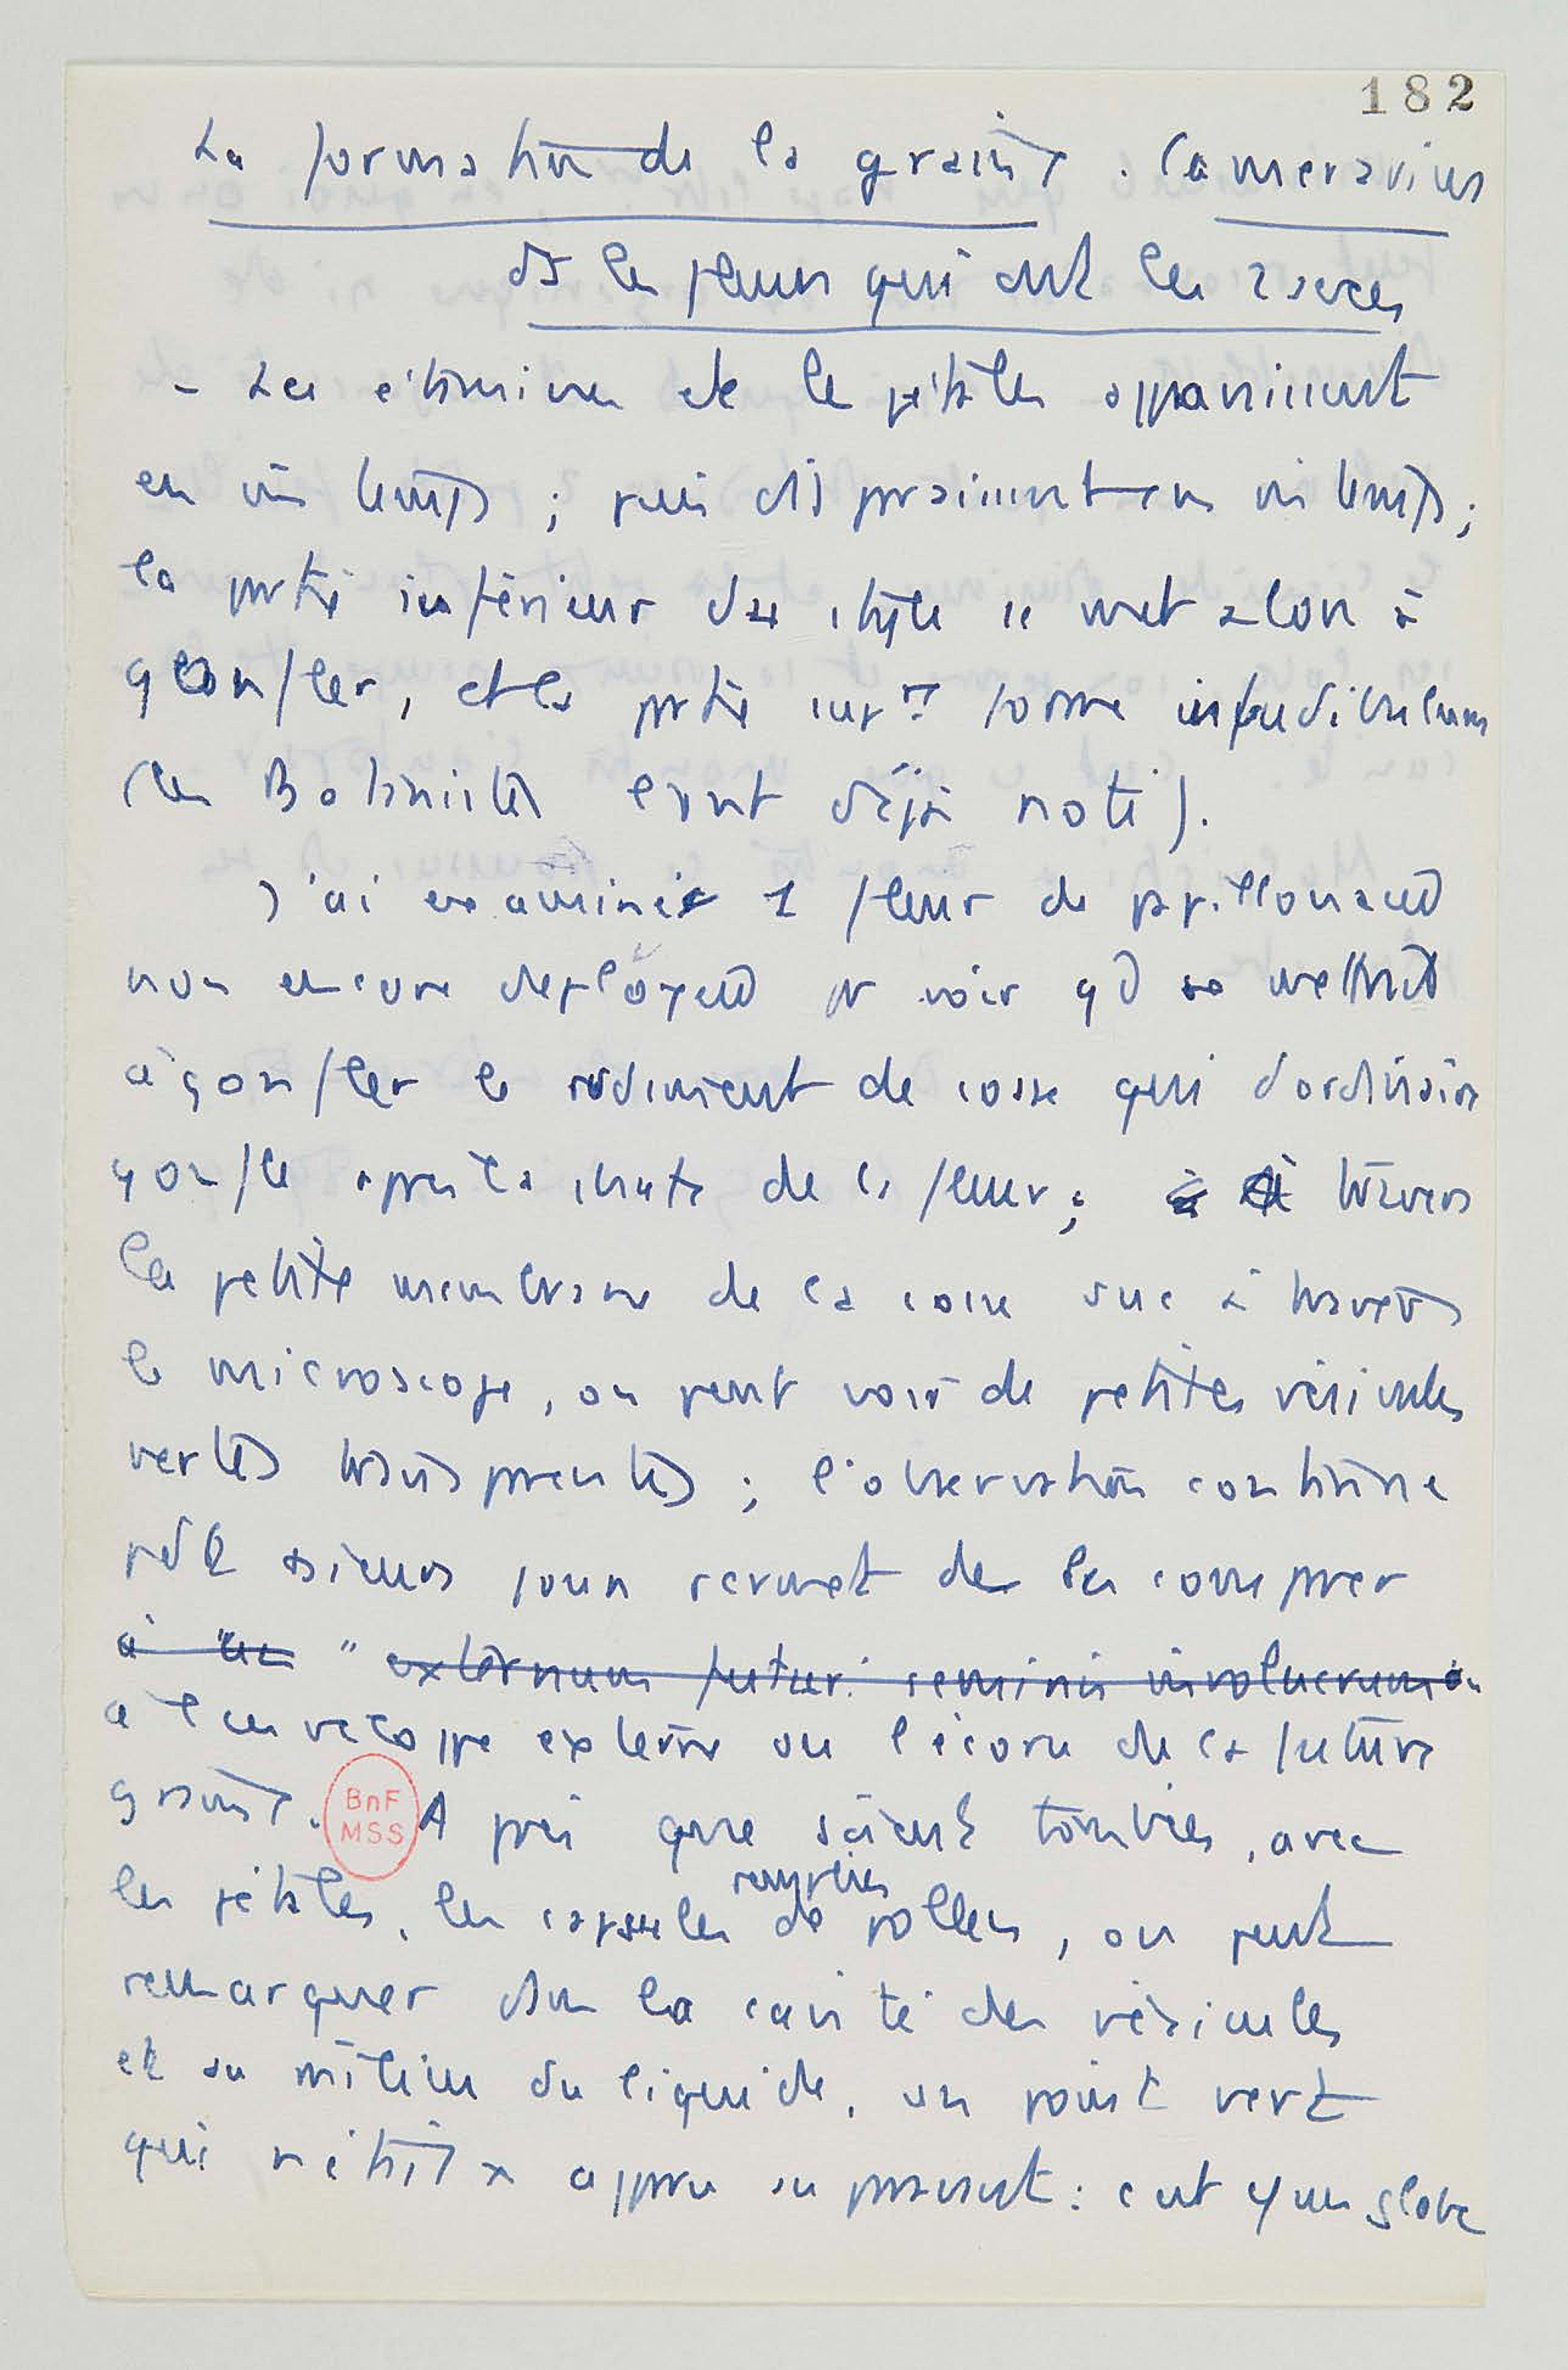 182
La formation de la graine. Camerarius
ds les fleurs qui ont les 2 sexes
- Les étamines et le pétales apparaissent
en m temps ; puis disparaissent en m temps ;
la partie inférieur du style se met alors à
gonfler, et la partie supre forme infudibulum
(les Botanistes l'ont déjà noté).
J'ai examiné 1 fleur de papillonacées
non encore deployées pr voir qd se mettrait
à gonfler le rudiment de cosse qui d'ordinaire
gonfle après la chute de la fleur ; à travers
la petite membrane de la cosse vue à travers
le microscope, on peut voir de petites vésicules
vertes transparentes ; l'observation continue
pdt jours permet de les comparer
à un " externum futuri seminis involucrum ou
à l'enveloppe externe ou l'écorce de la future
graine. BnF MSS Après que soient tombées, avec
les pétales, les capsules remplies de pollen, on peut
remarquer dans la cavité des vésicules
et au milieu du liquide, un point vert
qui n'était apparu auparavant : c'est un globe